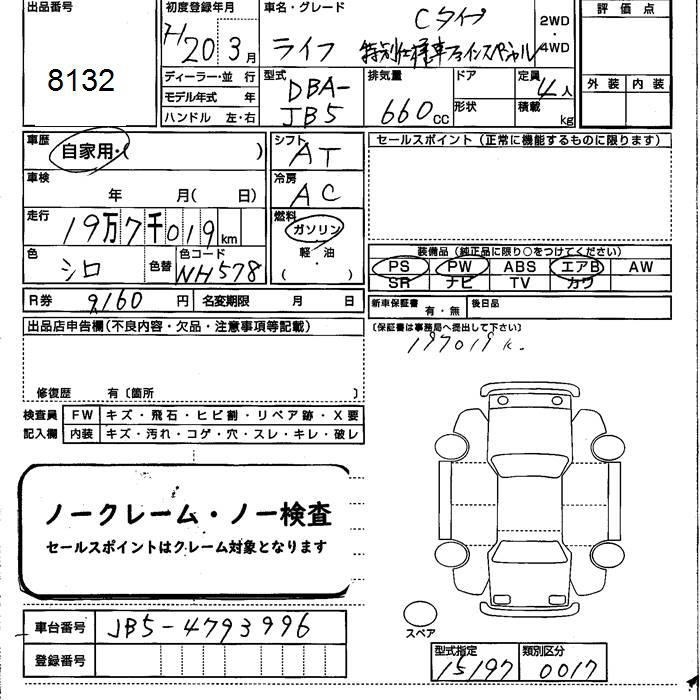 出品番号
8132
初度登録年月
H20 3月
ディーラー・並行
モデル年式 年
ハンドル 左・右
車名・グレード
Cタイプ
ライフ 特別仕様車ファインスペシャル
2WD
・
4WD
型式
DBA-
JB5
排気量
660cc
ドア
形状
定員
4人
積載
kg
評価点
外装 内装
車歴
自家用・( )
車検
年 月( 日)
走行
19万7千019km
色
シロ
色替
色コード
NH578
シフト
AT
冷房
AC
燃料
ガソリン
軽・油
( ・ )
R券 9,160円 名変期限 月 日
セールスポイント(正常に機能するものに限ります)
装備品(純正品に限り○をつけてください)
PS PW ABS エアB AW
SR ナビ TV カワ
新車保証書 有・無 後日品
(保証書は事務局へ提出して下さい)
197019k.
出品店申告欄(不良内容・欠品・注意事項等記載)
修復歴 有〔箇所 〕
検査員 FW キズ・飛石・ヒビ割・リペア跡・X要
記入欄 内装 キズ・汚れ・コゲ・穴・スレ・キレ・破レ
ノークレーム・ノー検査
セールスポイントはクレーム対象となります
車台番号 JB5-4793996
登録番号
スペア
型式指定 類別区分
15197 0017